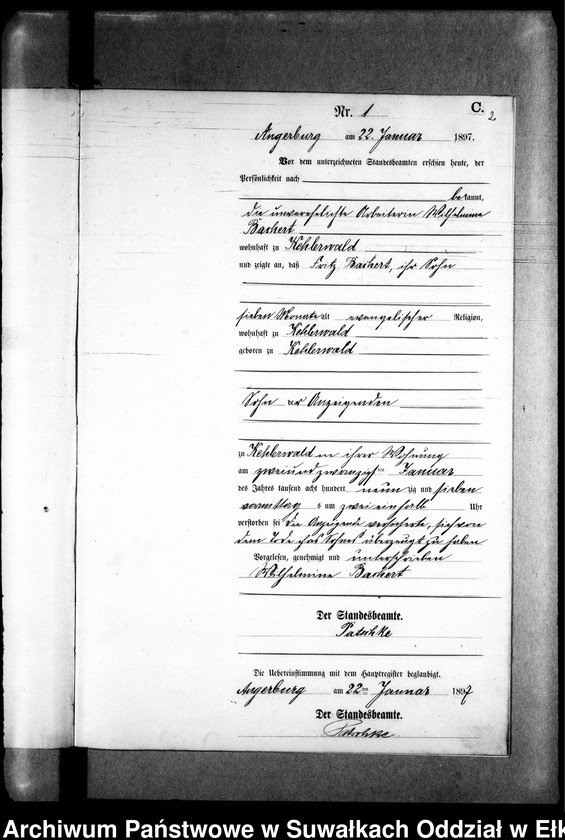 C.
2
Nr. 1
Angerburg am 22. Januar 1897.
Vor dem unterzeichneten Standesbeamten erschien heute, der
Persönlichkeit nach
bekannt,
die unverehelichte Arbeiterin Wilhelmine
Baschert
wohnhaft zu Kehlerwald
und zeigte an, daß Fritz Baschert, ihr Sohn
sieben Monate alt evangelischer Religion,
wohnhaft zu Kehlerwald
geboren zu Kehlerwald
Sohn der Anzeigenden
zu Kehlerwald in ihrer Wohnung
am zweiundzwanzigsten Januar
des Jahres tausend acht hundert neunzig und sieben
vormittags um zwei einhalb Uhr
verstorben sei. Die Anzeigende versicherte, sich von
dem Tode ihres Sohnes überzeugt zu haben
Vorgelesen, genehmigt und unterschrieben
Wilhelmine Baschert
Der Standesbeamte.
Patschke
Die Uebereinstimmung mit dem Hauptregister beglaubigt.
Angerburg am 22ten Januar 1897
Der Standesbeamte.
Patschke
Archiwum Państwowe w Suwałkach Oddział w Ełk